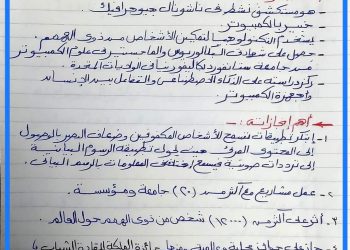 - هو مستكشف قطري في ناشونال جيوجرافيك.
- خبير بالكمبيوتر.
- يستخدم التكنولوجيا لتمكين الأشخاص من ذوي الهمم.
- حصل على شهادتي البكالوريوس والماجستير في علوم الكمبيوتر
من جامعة ستانفورد بكاليفورنيا في الولايات المتحدة.
- ركز دراسته على الذكاء الاصطناعي والتفاعل بين الإنسان
وأجهزة الكمبيوتر
- أهم إنجازاته :-
١- ابتكر تطبيقات تسمح للأشخاص المكفوفين وضعاف البصر بالوصول
إلى المحتوى المرئي حيث يحول تطبيقه الرسوم البيانية
إلى ترددات صوتية فيسمع اختلاف المعلومات بالرسم البياني.
٢- عمل مشاريع مع أكثر من (٢٠) جامعة ومؤسسة.
٣- أثر على أكثر من (١٢٠٠٠) شخص من ذوي الهمم حول العالم.